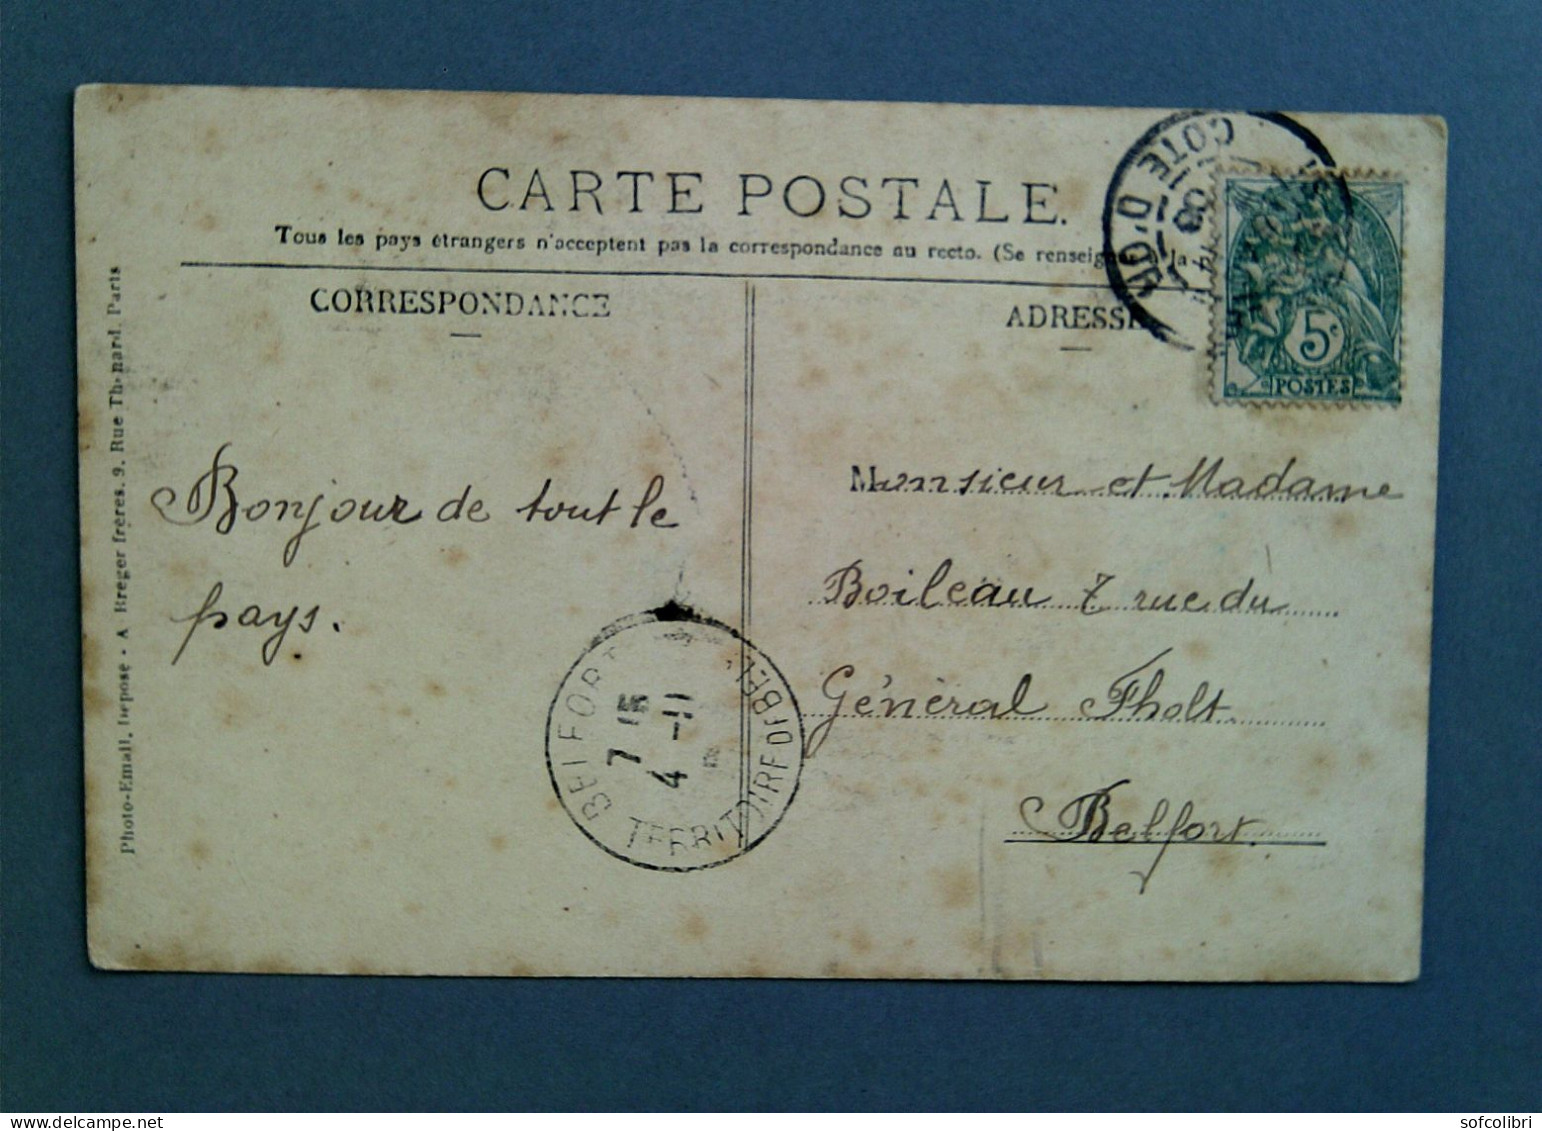 CARTE POSTALE.
Tous les pays étrangers n'acceptent pas la correspondance au recto. (Se renseigner à la
CORRESPONDANCE
ADRESSE
COTE D'OR
08
5c
POSTES
Bonjour de tout le
pays.
Monsieur et Madame
Boileau 7 rue du
Général Fholt.
Belfort.
BELFORT
7 15
4 -11
TERRITOIRE DE BEL
Photo-Email. Déposé - A Breger frères. 9. Rue Thénard. Paris
sofcolibri